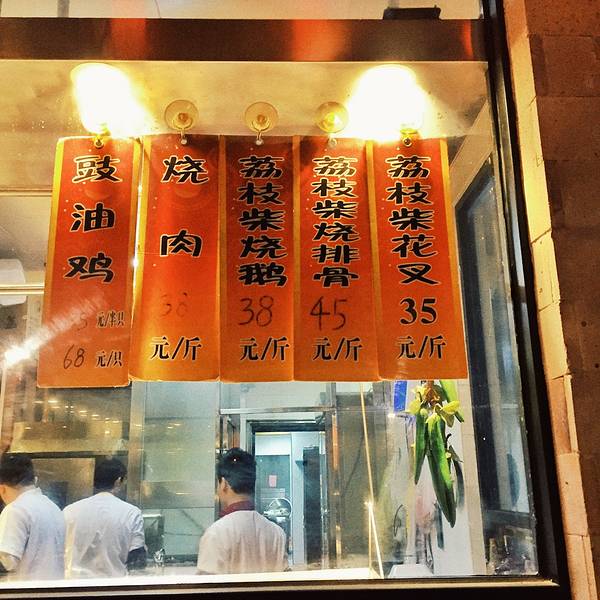 豉油鸡
元/半只
68 元/只
烧肉
38
元/斤
荔枝柴烧鹅
38
元/斤
荔枝柴烧排骨
45
元/斤
荔枝柴花叉
35
元/斤